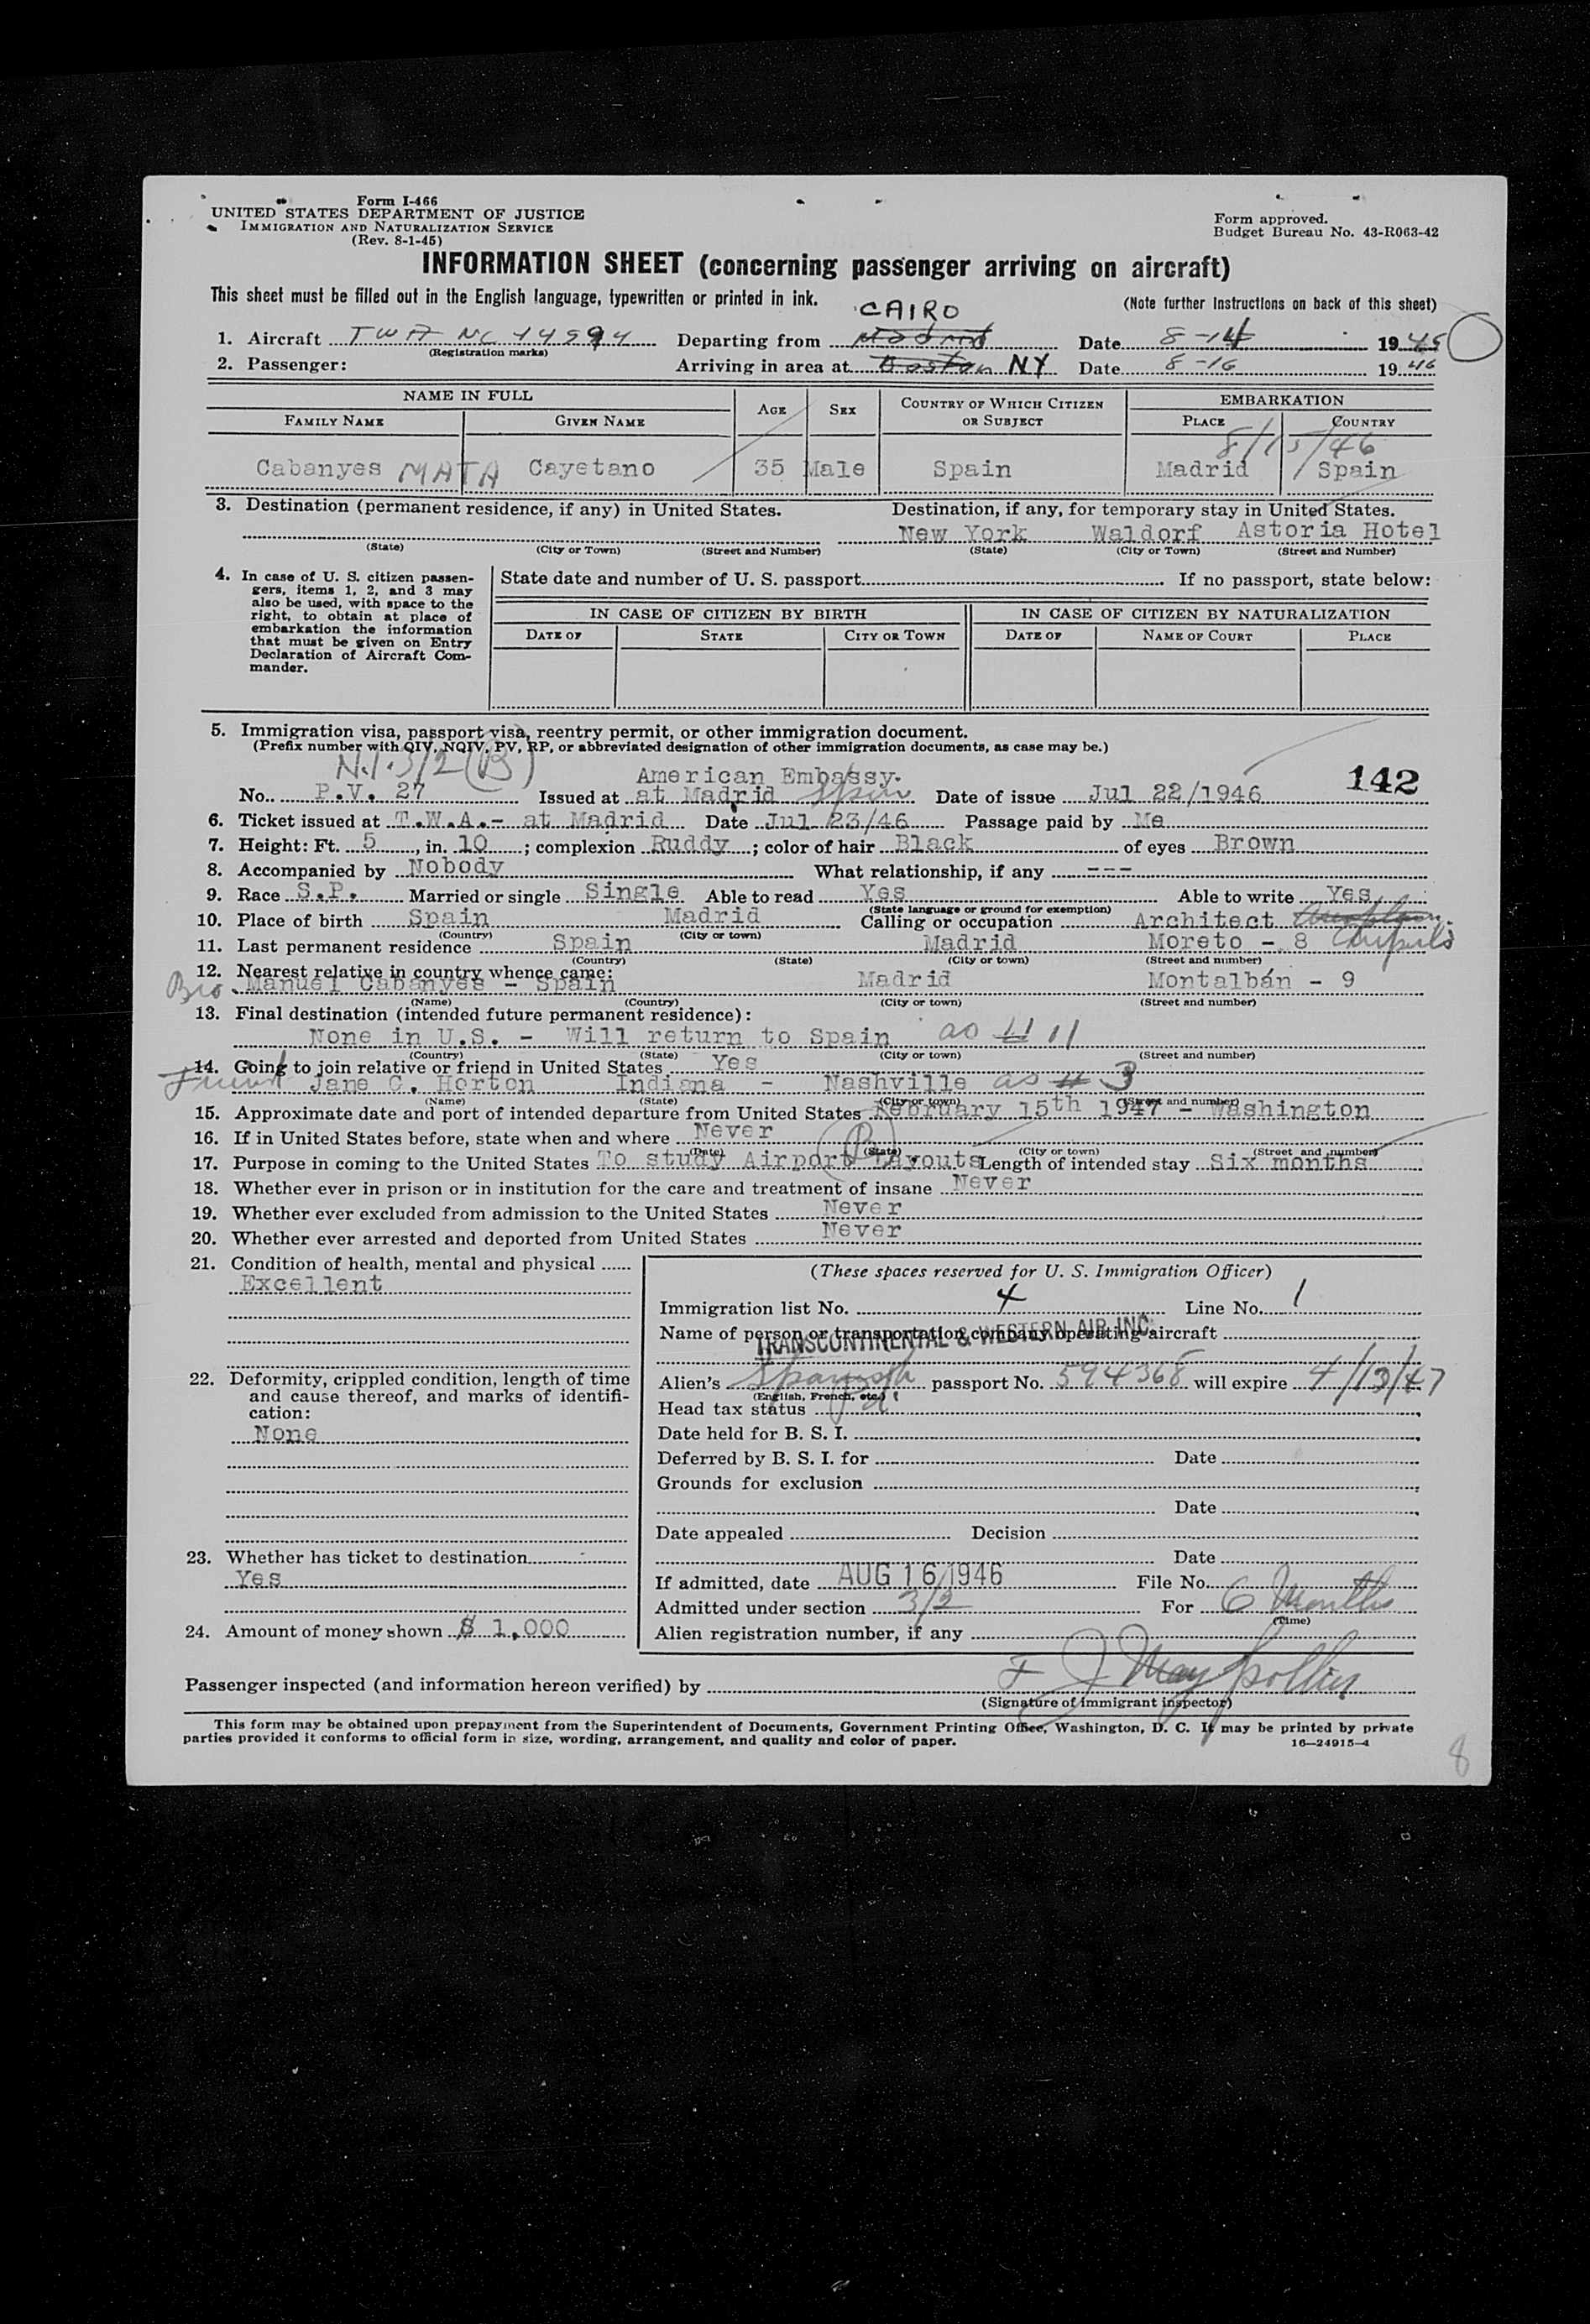 Form I-466
UNITED STATES DEPARTMENT OF JUSTICE
IMMIGRATION AND NATURALIZATION SERVICE
(Rev. 8-1-45)
Form approved.
Budget Bureau No. 43-R063-42
INFORMATION SHEET (concerning passenger arriving on aircraft)
This sheet must be filled out in the English language, typewritten or printed in ink.
(Note further instructions on back of this sheet)
CAIRO
1. Aircraft TWA NC 44594 Departing from Madrid Date 8-14 1945
(Registration marks)
2. Passenger: Arriving in area at Boston NY Date 8-16 1946
NAME IN FULL AGE SEX COUNTRY OF WHICH CITIZEN OR SUBJECT EMBARKATION
FAMILY NAME GIVEN NAME PLACE COUNTRY
8/15/46
Cabanyes MATA Cayetano 35 Male Spain Madrid Spain
3. Destination (permanent residence, if any) in United States. Destination, if any, for temporary stay in United States.
New York Waldorf Astoria Hotel
(State) (City or Town) (Street and Number) (State) (City or Town) (Street and Number)
4. In case of U. S. citizen passengers, items 1, 2, and 3 may also be used, with space to the right, to obtain at place of embarkation the information that must be given on Entry Declaration of Aircraft Commander.
State date and number of U. S. passport If no passport, state below:
IN CASE OF CITIZEN BY BIRTH IN CASE OF CITIZEN BY NATURALIZATION
DATE OF STATE CITY OR TOWN DATE OF NAME OF COURT PLACE
5. Immigration visa, passport visa, reentry permit, or other immigration document.
(Prefix number with QIV, NQIV, PV, RP, or abbreviated designation of other immigration documents, as case may be.)
N.I. 3/2 (B)
American Embassy. 142
No. P.V. 27 Issued at at Madrid Spain Date of issue Jul 22/1946
6. Ticket issued at T.W.A.- at Madrid Date Jul 23/46 Passage paid by Me
7. Height: Ft. 5, in. 10; complexion Ruddy; color of hair Black of eyes Brown
8. Accompanied by Nobody What relationship, if any ---
9. Race S.P. Married or single Single Able to read Yes Able to write Yes
(State language or ground for exemption)
10. Place of birth Spain Madrid Calling or occupation Architect
(Country) (City or town)
11. Last permanent residence Spain Madrid Moreto - 8
(Country) (State) (City or town) (Street and number)
12. Nearest relative in country whence came:
Bro. Manuel Cabanyes - Spain Madrid Montalbán - 9
(Name) (Country) (City or town) (Street and number)
13. Final destination (intended future permanent residence):
None in U.S. - Will return to Spain as # 11
(Country) (State) (City or town) (Street and number)
14. Going to join relative or friend in United States Yes
Friend Jane C. Horton Indiana - Nashville as # 3
(Name) (State) (City or town) (Street and number)
15. Approximate date and port of intended departure from United States February 15th 1947 - Washington
16. If in United States before, state when and where Never
(Date) (State) (City or town) (Street and number)
(B)
17. Purpose in coming to the United States To study Airport Layouts. Length of intended stay Six months
18. Whether ever in prison or in institution for the care and treatment of insane Never
19. Whether ever excluded from admission to the United States Never
20. Whether ever arrested and deported from United States Never
21. Condition of health, mental and physical
Excellent
22. Deformity, crippled condition, length of time and cause thereof, and marks of identification:
None
23. Whether has ticket to destination
Yes
24. Amount of money shown $ 1,000
(These spaces reserved for U. S. Immigration Officer)
Immigration list No. 4 Line No. 1
Name of person or transportation company operating aircraft
TRANSCONTINENTAL & WESTERN AIR INC.
Alien's Spanish passport No. 594368 will expire 4/13/47
(English, French, etc.)
Head tax status
Date held for B. S. I.
Deferred by B. S. I. for Date
Grounds for exclusion
Date
Date appealed Decision
Date
If admitted, date AUG 16 1946 File No.
Admitted under section 3/2 For 6 Months
(Time)
Alien registration number, if any
Passenger inspected (and information hereon verified) by
(Signature of immigrant inspector)
This form may be obtained upon prepayment from the Superintendent of Documents, Government Printing Office, Washington, D. C. It may be printed by private
parties provided it conforms to official form in size, wording, arrangement, and quality and color of paper.
16—24915-4
8